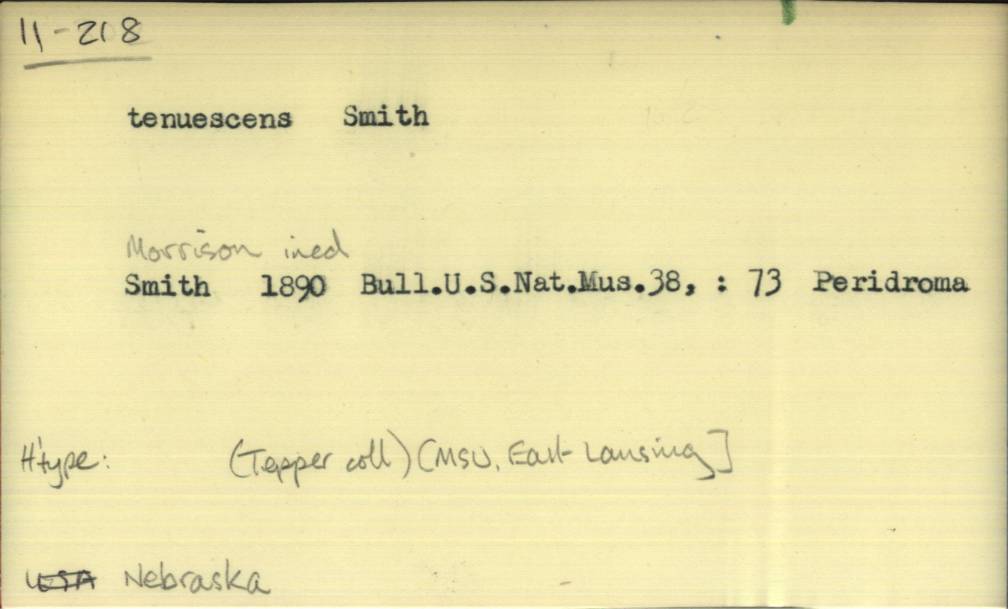 11-218
tenuescens Smith
Morrison ined
Smith 1890 Bull.U.S.Nat.Mus.38, : 73 Peridroma
H'type: (Tepper coll) (MSU, East Lansing]
USA Nebraska